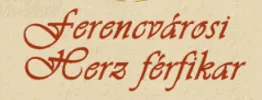 Ferencvárosi
Herz férfikar